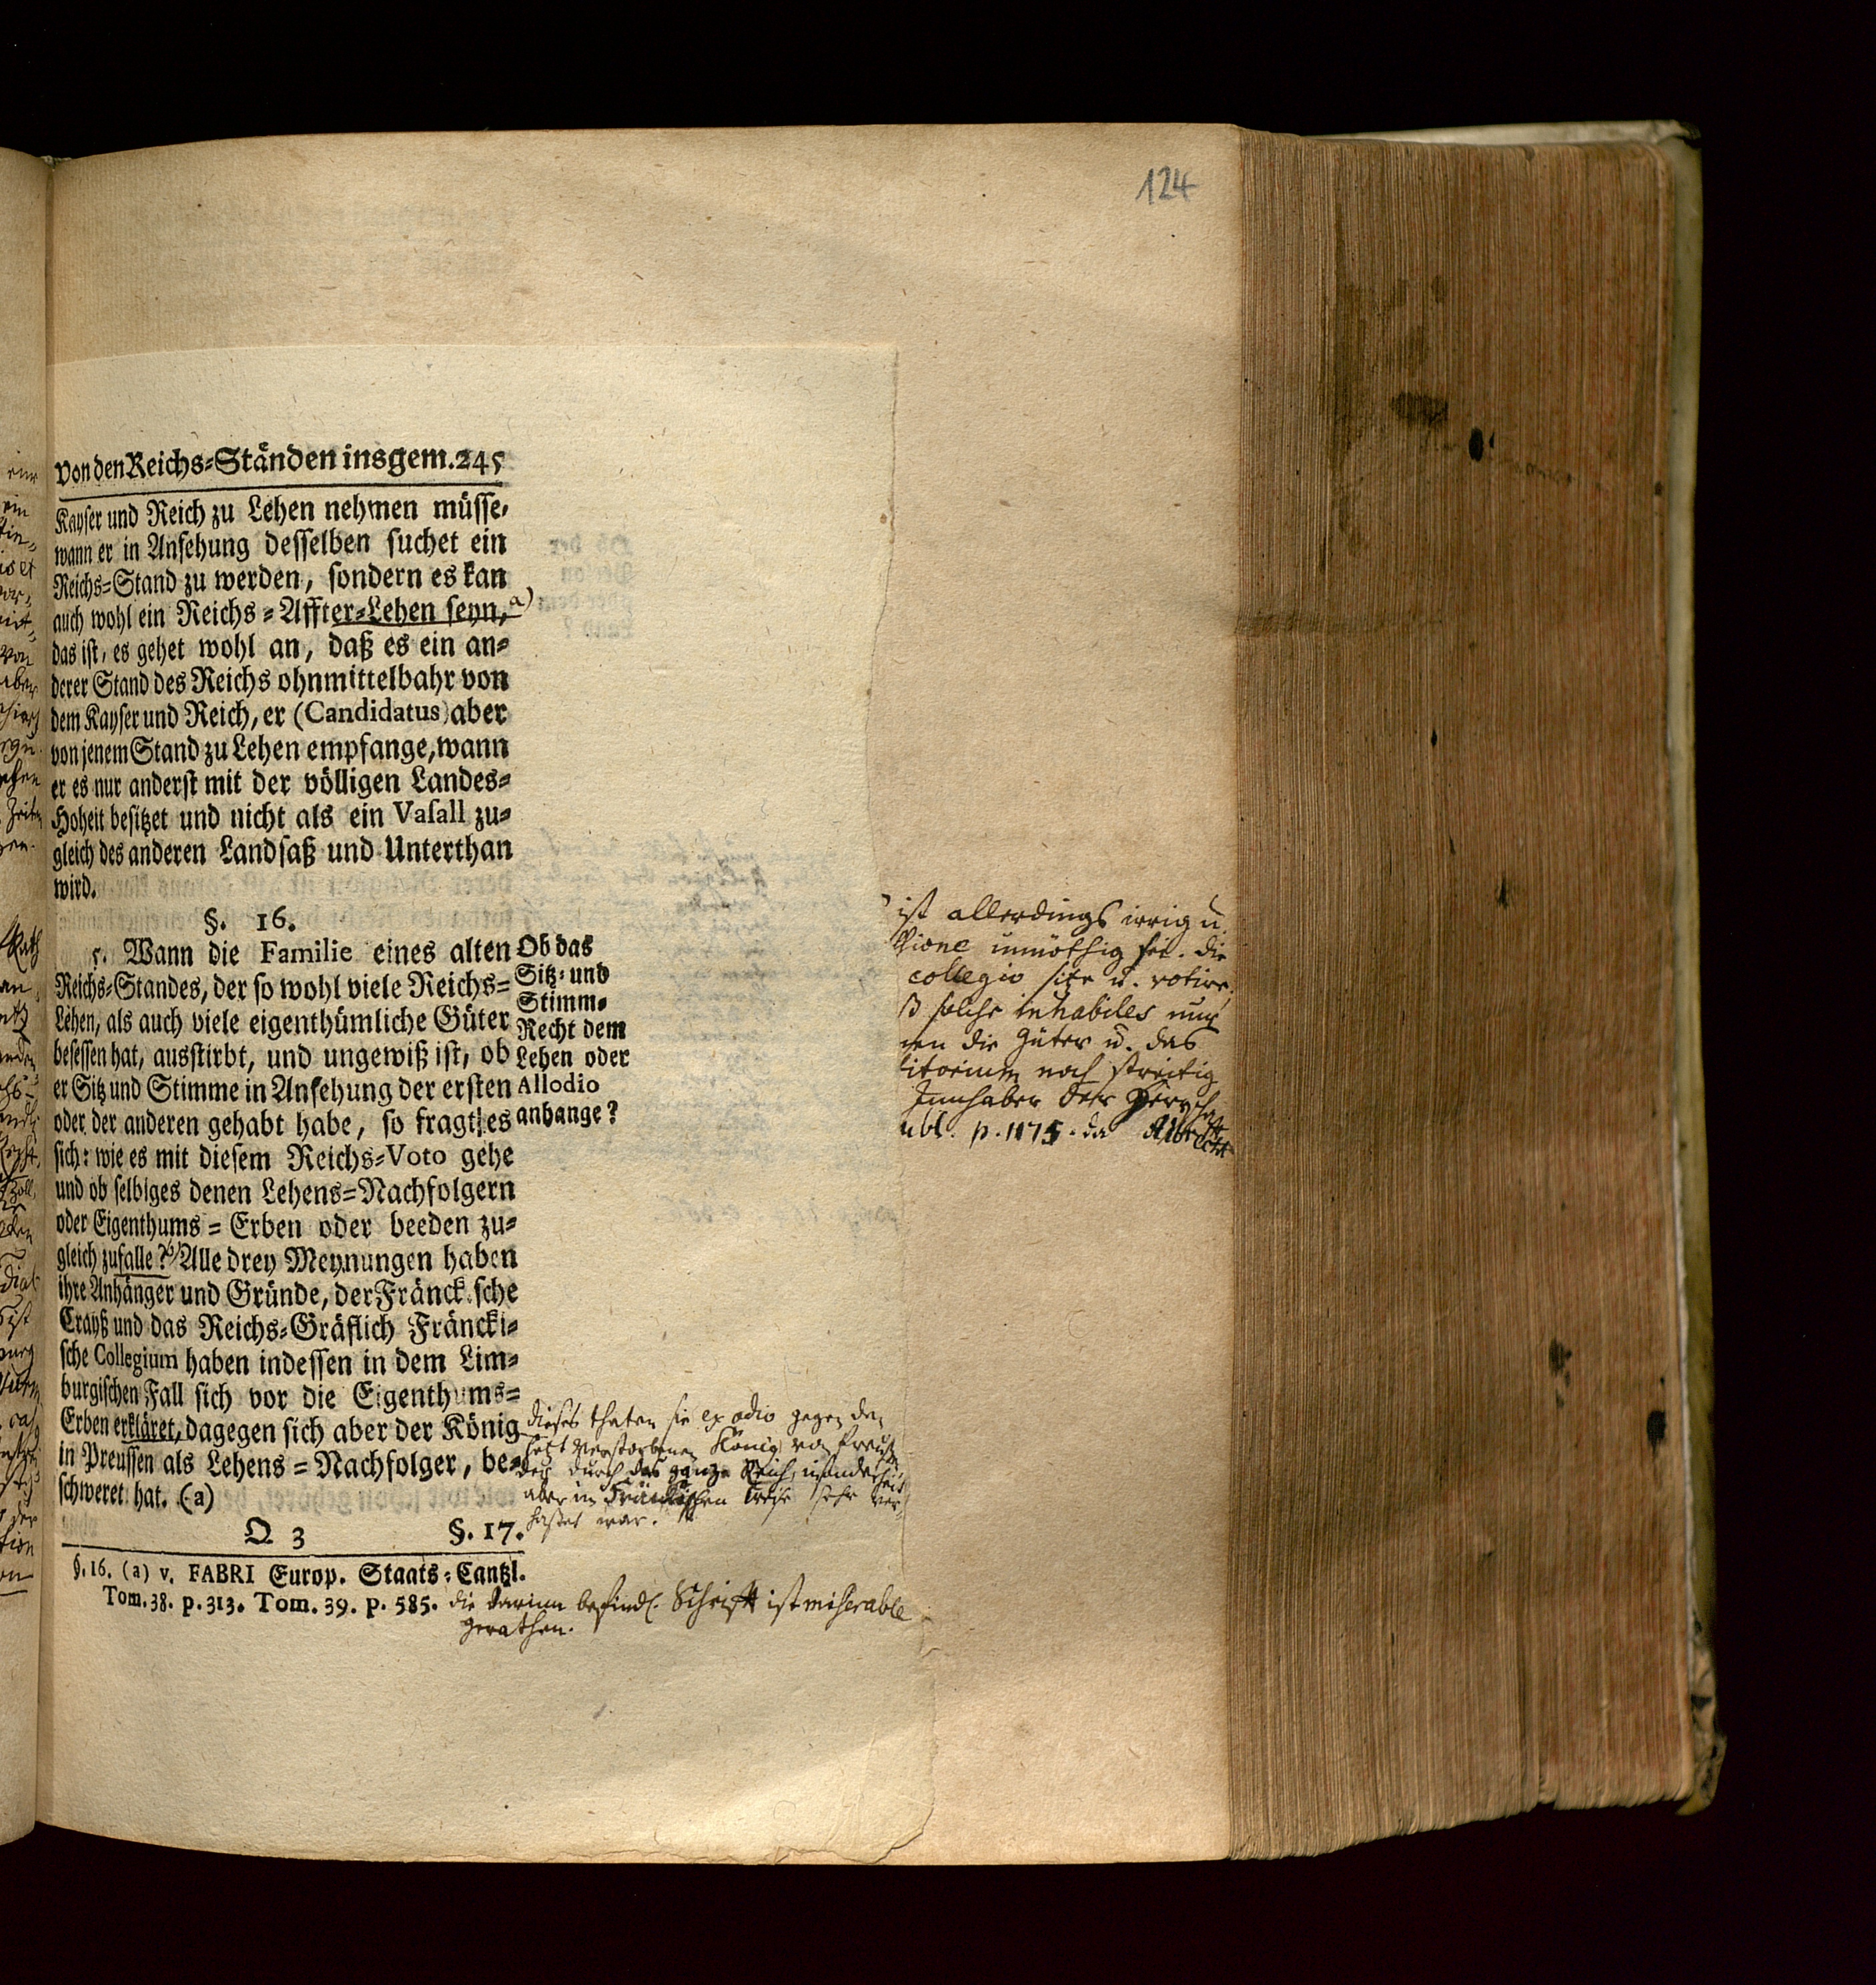 124
von den Reichs=Ständen insgem. 245
Kayser und Reich zu Lehen nehmen müsse,
wann er in Ansehung desselben suchet ein
Reichs=Stand zu werden, sondern es kan
auch wohl ein Reichs=Affter=Lehen seyn, a)
das ist, es gehet wohl an, daß es ein an=
derer Stand des Reichs ohnmittelbahr von
dem Kayser und Reich, er (Candidatus) aber
von jenem Stand zu Lehen empfange, wann
er es nur anderst mit der völligen Landes=
Hoheit besitzet und nicht als ein Vasall zu=
gleich des anderen Landsaß und Unterthan
wird.
§. 16.
5. Wann die Familie eines alten
Reichs=Standes, der so wohl viele Reichs=
Lehen, als auch viele eigenthümliche Güter
besessen hat, ausstirbt, und ungewiß ist, ob
er Sitz und Stimme in Ansehung der ersten
oder der anderen gehabt habe, so fragt es
sich: wie es mit diesem Reichs=Voto gehe
und ob selbiges denen Lehens=Nachfolgern
oder Eigenthums=Erben oder beeden zu=
gleich zufalle? b) Alle drey Meynungen haben
ihre Anhänger und Gründe, der Fränck.sche
Crayß und das Reichs=Gräflich Fräncki=
sche Collegium haben indessen in dem Lim=
burgischen Fall sich vor die Eigenthums=
Erben erkläret, dagegen sich aber der König
in Preussen als Lehens=Nachfolger, be=
schweret hat. (a)
Q 3 §. 17.
Ob das
Sitz= und
Stimm=
Recht dem
Lehen oder
Allodio
anhange?
ist allerdings irrig u.
unnöthig sei. die
collegio sitze u. votire
solche inhabiles nur
die Güter u. das
noch streitig
Innhaber der Herrschafft
p. 1175. da Albrecht
dieses thaten sie ex odio gegen den
jetzt verstorbenen König von Preuß.
der durch das ganze Reich, insonderheit
aber im Fränkischen Creise sehr ver=
hasset war.
§. 16. (a) v. FABRI Europ. Staats=Cantzl.
Tom. 38. p. 313. Tom. 39. p. 585. die darinn befindl. Schrifft ist miserable
gerathen.